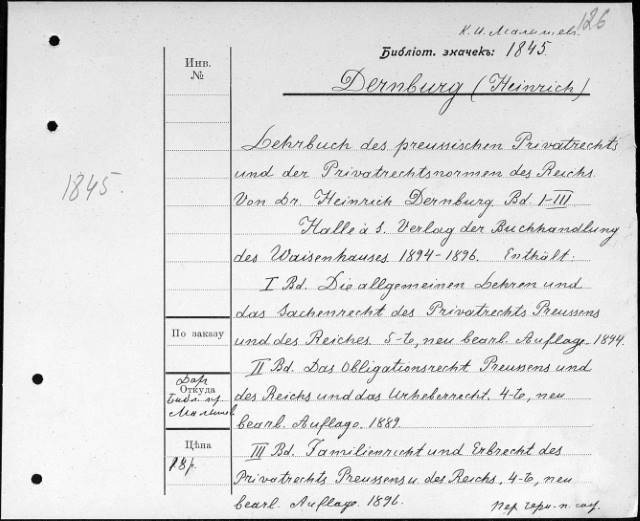 126
К. И. Малышев.
Библіот. значекъ: 1845.
Инв.
№
Dernburg (Heinrich)
1845.
Lehrbuch des preussischen Privatrechts
und der Privatrechtsnormen des Reichs.
Von Dr. Heinrich Dernburg. Bd. I-III
Halle à S. Verlag der Buchhandlung
des Waisenhauses 1894-1896. Enthält:
I Bd. Die allgemeinen Lehren und
das Sachenrecht des Privatrechts Preussens
По заказу
und des Reiches. 5-te, neu bearb. Auflage. 1894.
II Bd. Das Obligationsrecht Preussens und
Дар
Откуда
Библ. пр.
Малышев.
des Reichs und das Urheberrecht. 4-te, neu
bearb. Auflage. 1889.
Цѣна
18р.
III Bd. Familienricht und Erbrecht des
Privatrechts Preussens u. des Reichs, 4-te, neu
bearb. Auflage. 1896.
Пер.